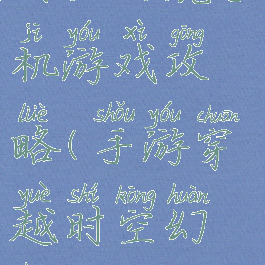 jī yóu xì gōng
机游戏攻
lüè shǒu yóu chuān
略(手游穿
yuè shí kōng huàn
越时空幻